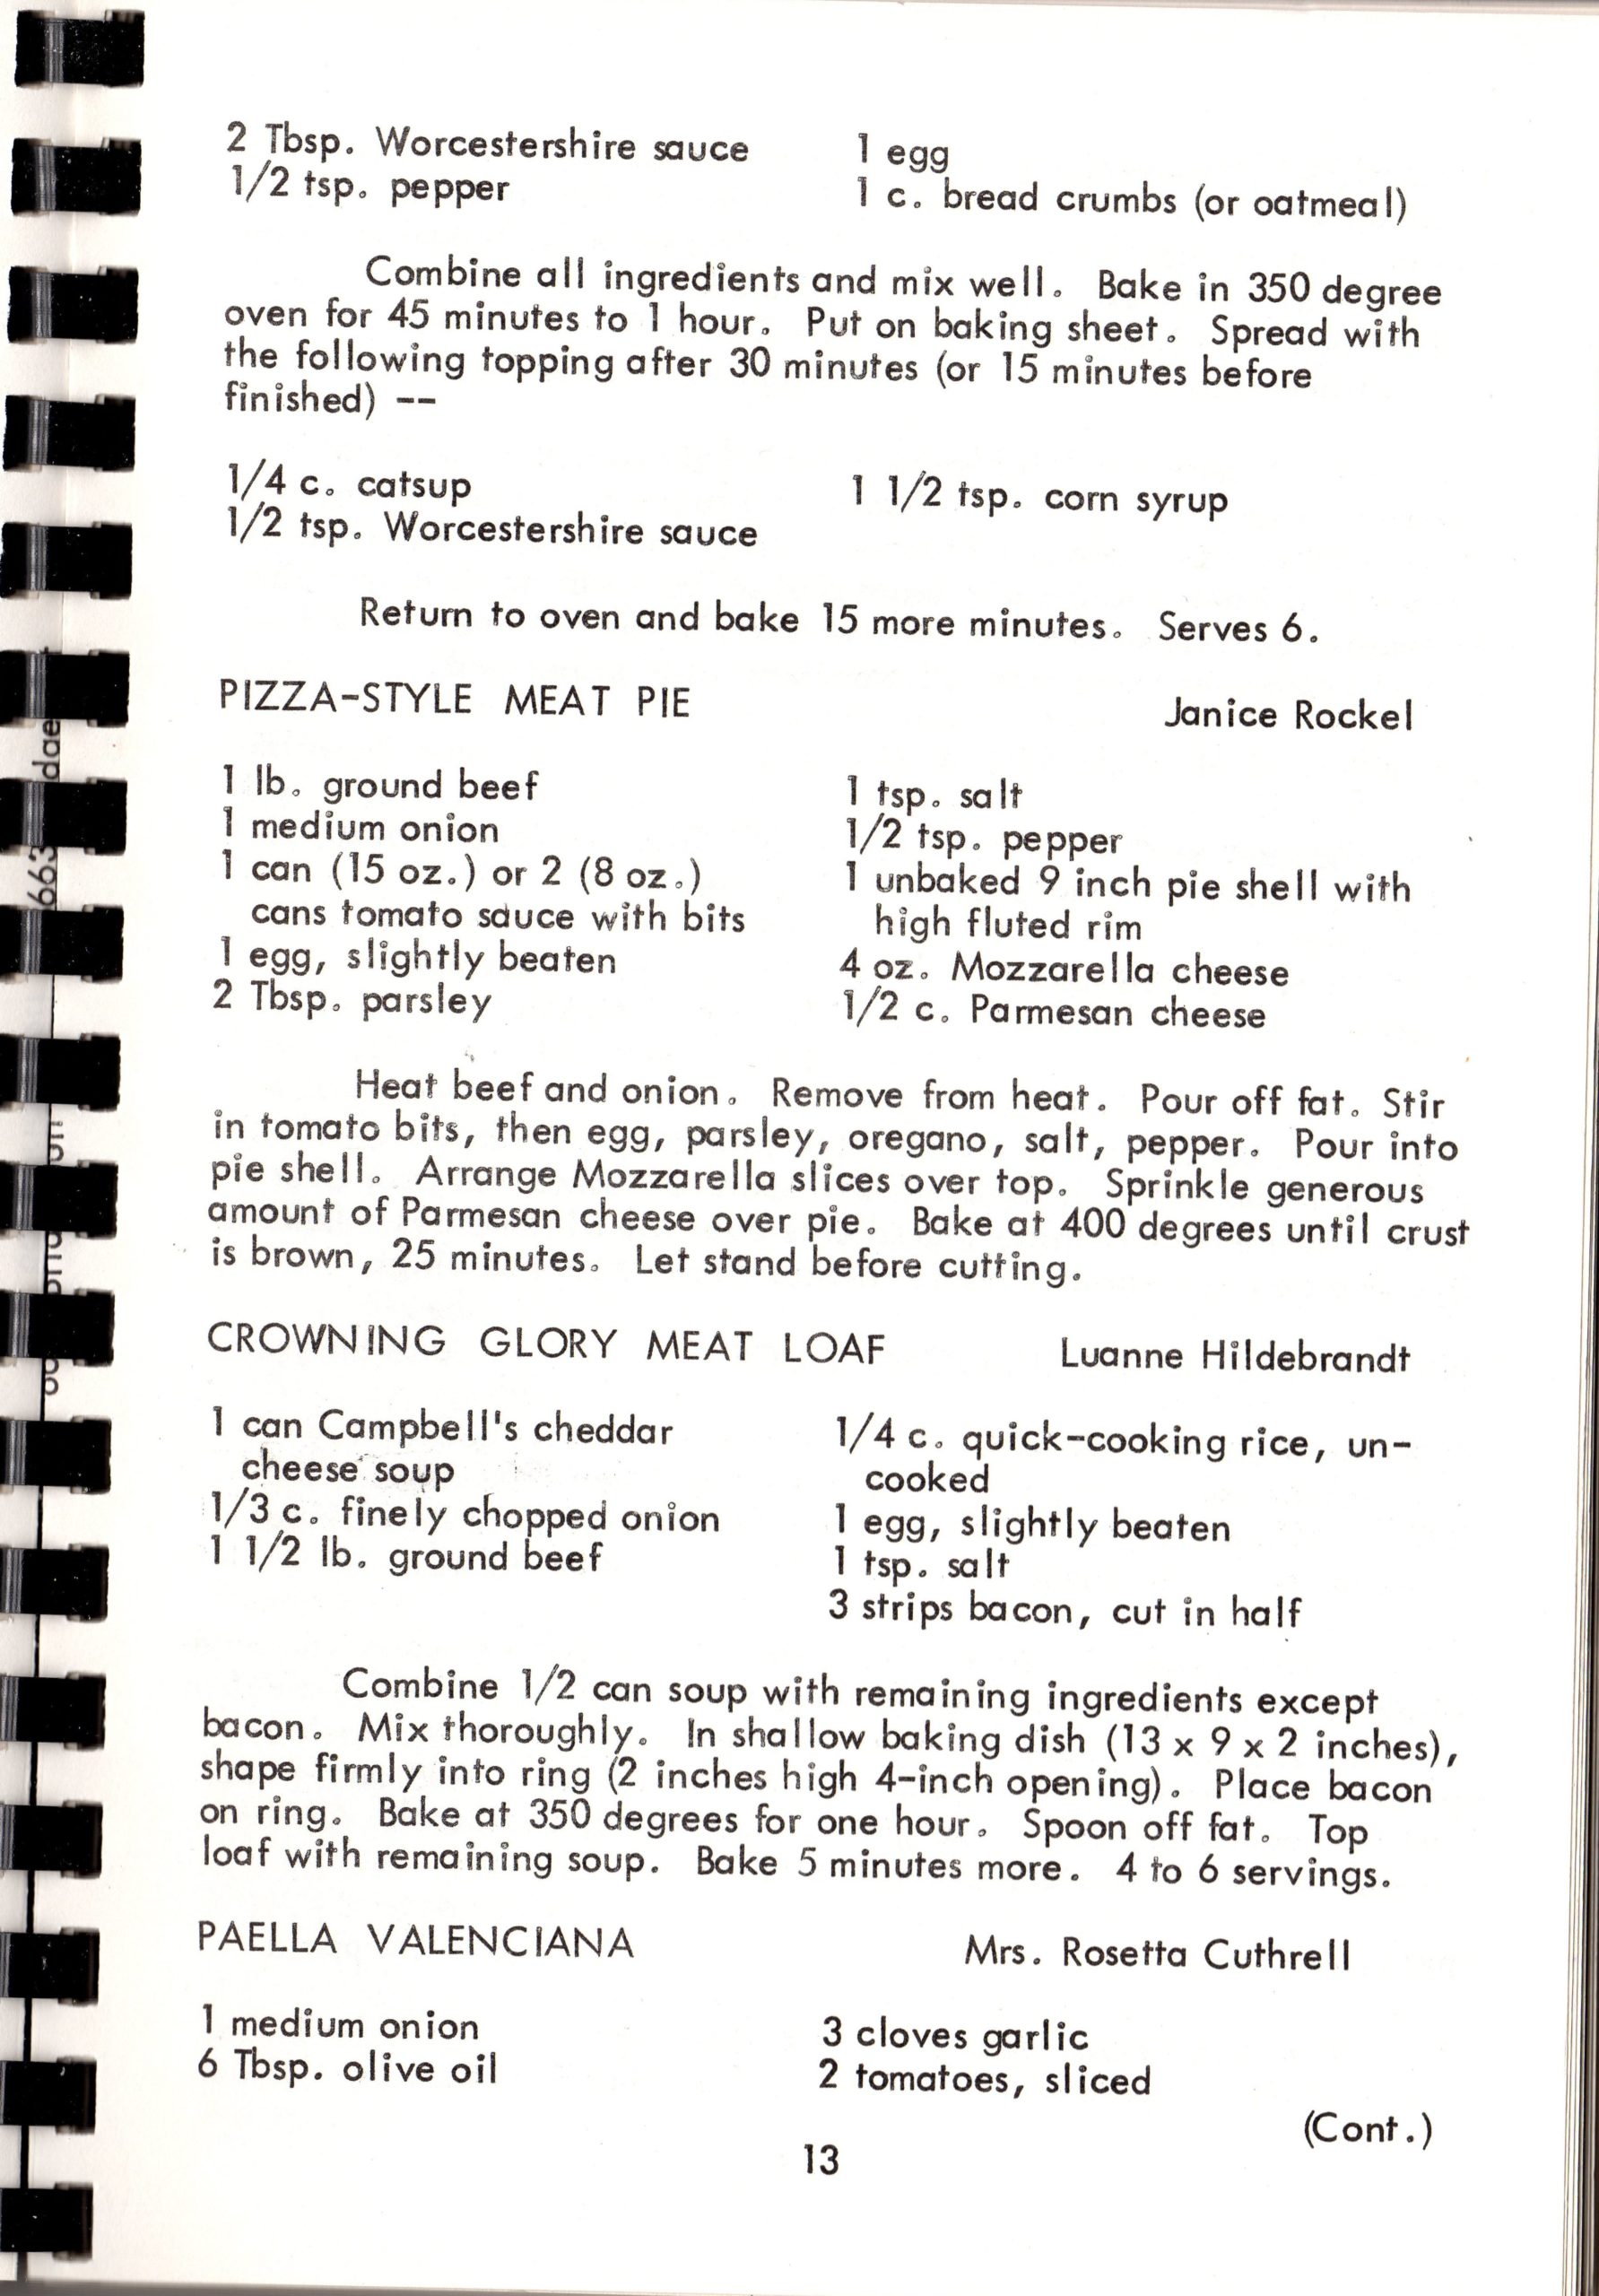 2 Tbsp. Worcestershire sauce
1/2 tsp. pepper
1 egg
1 c. bread crumbs (or oatmeal)
Combine all ingredients and mix well. Bake in 350 degree
oven for 45 minutes to 1 hour. Put on baking sheet. Spread with
the following topping after 30 minutes (or 15 minutes before
finished) --
1/4 c. catsup
1/2 tsp. Worcestershire sauce
1 1/2 tsp. corn syrup
Return to oven and bake 15 more minutes. Serves 6.
PIZZA-STYLE MEAT PIE
Janice Rockel
1 lb. ground beef
1 medium onion
1 can (15 oz.) or 2 (8 oz.)
cans tomato sauce with bits
1 egg, slightly beaten
2 Tbsp. parsley
1 tsp. salt
1/2 tsp. pepper
1 unbaked 9 inch pie shell with
high fluted rim
4 oz. Mozzarella cheese
1/2 c. Parmesan cheese
Heat beef and onion. Remove from heat. Pour off fat. Stir
in tomato bits, then egg, parsley, oregano, salt, pepper. Pour into
pie shell. Arrange Mozzarella slices over top. Sprinkle generous
amount of Parmesan cheese over pie. Bake at 400 degrees until crust
is brown, 25 minutes. Let stand before cutting.
CROWNING GLORY MEAT LOAF
Luanne Hildebrandt
1 can Campbell's cheddar
cheese soup
1/3 c. finely chopped onion
1 1/2 lb. ground beef
1/4 c. quick-cooking rice, un-
cooked
1 egg, slightly beaten
1 tsp. salt
3 strips bacon, cut in half
Combine 1/2 can soup with remaining ingredients except
bacon. Mix thoroughly. In shallow baking dish (13 x 9 x 2 inches),
shape firmly into ring (2 inches high 4-inch opening). Place bacon
on ring. Bake at 350 degrees for one hour. Spoon off fat. Top
loaf with remaining soup. Bake 5 minutes more. 4 to 6 servings.
PAELLA VALENCIANA
Mrs. Rosetta Cuthrell
1 medium onion
6 Tbsp. olive oil
3 cloves garlic
2 tomatoes, sliced
(Cont.)
13